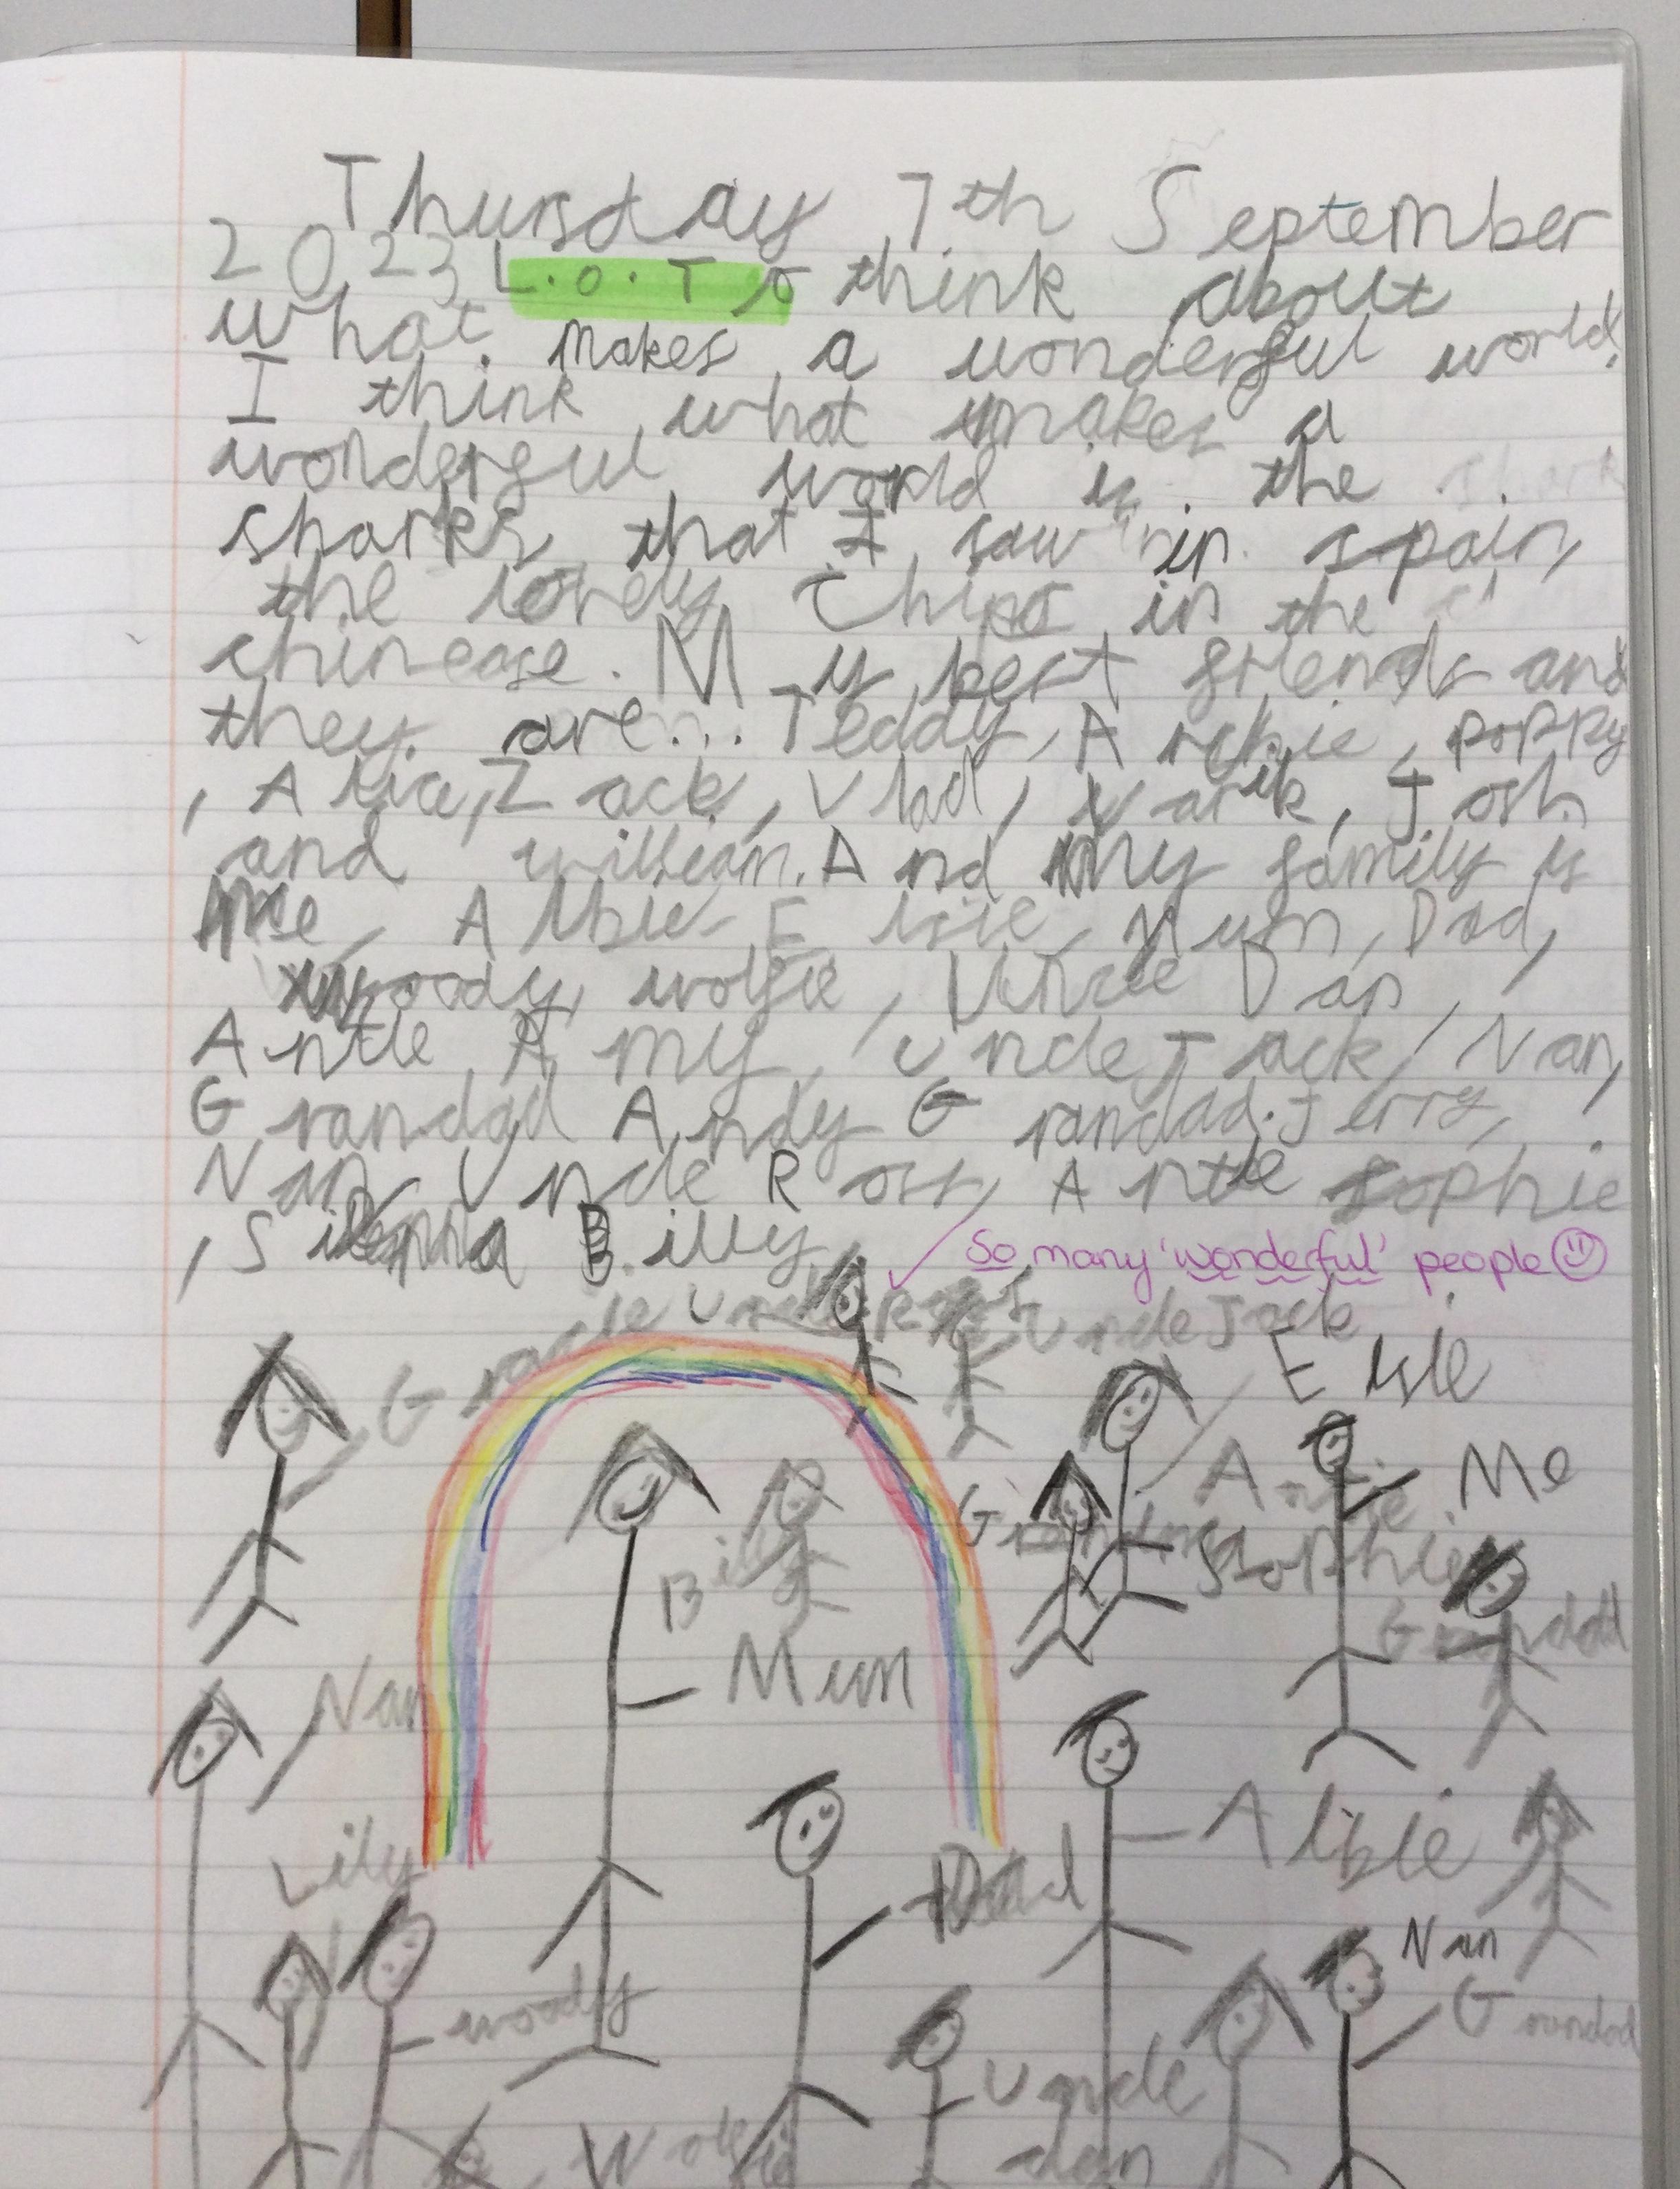 Thursday 7th September
2023 L.O. To think about
what makes a wonderful world.
I think what makes a
wonderful world is the
sharks that I saw in spain,
the lovely Chips in the
chinease. My best friends and
they are... Teddy, Archie, poppy
, Alice, Zack, Vlad, Narik, Josh
and william. And My family is
Me, Albie, Elsie, Mum, Dad,
woody, wolfie, Uncle Dan,
Antie Amy, Uncle Jack, Nan,
Grandad Andy Grandad Jerry,
Nan, Uncle Ross, Antie sophie
, Sienna Billy
So many 'wonderful' people
Gracie Uncle Ross Uncle Jack
Elsie
Me
Antie
Sophie
Billy
Grandad
Nan
Mum
Albie
Lily
Dad
Nan
woody
Grandad
Uncle
dan
Wolfie